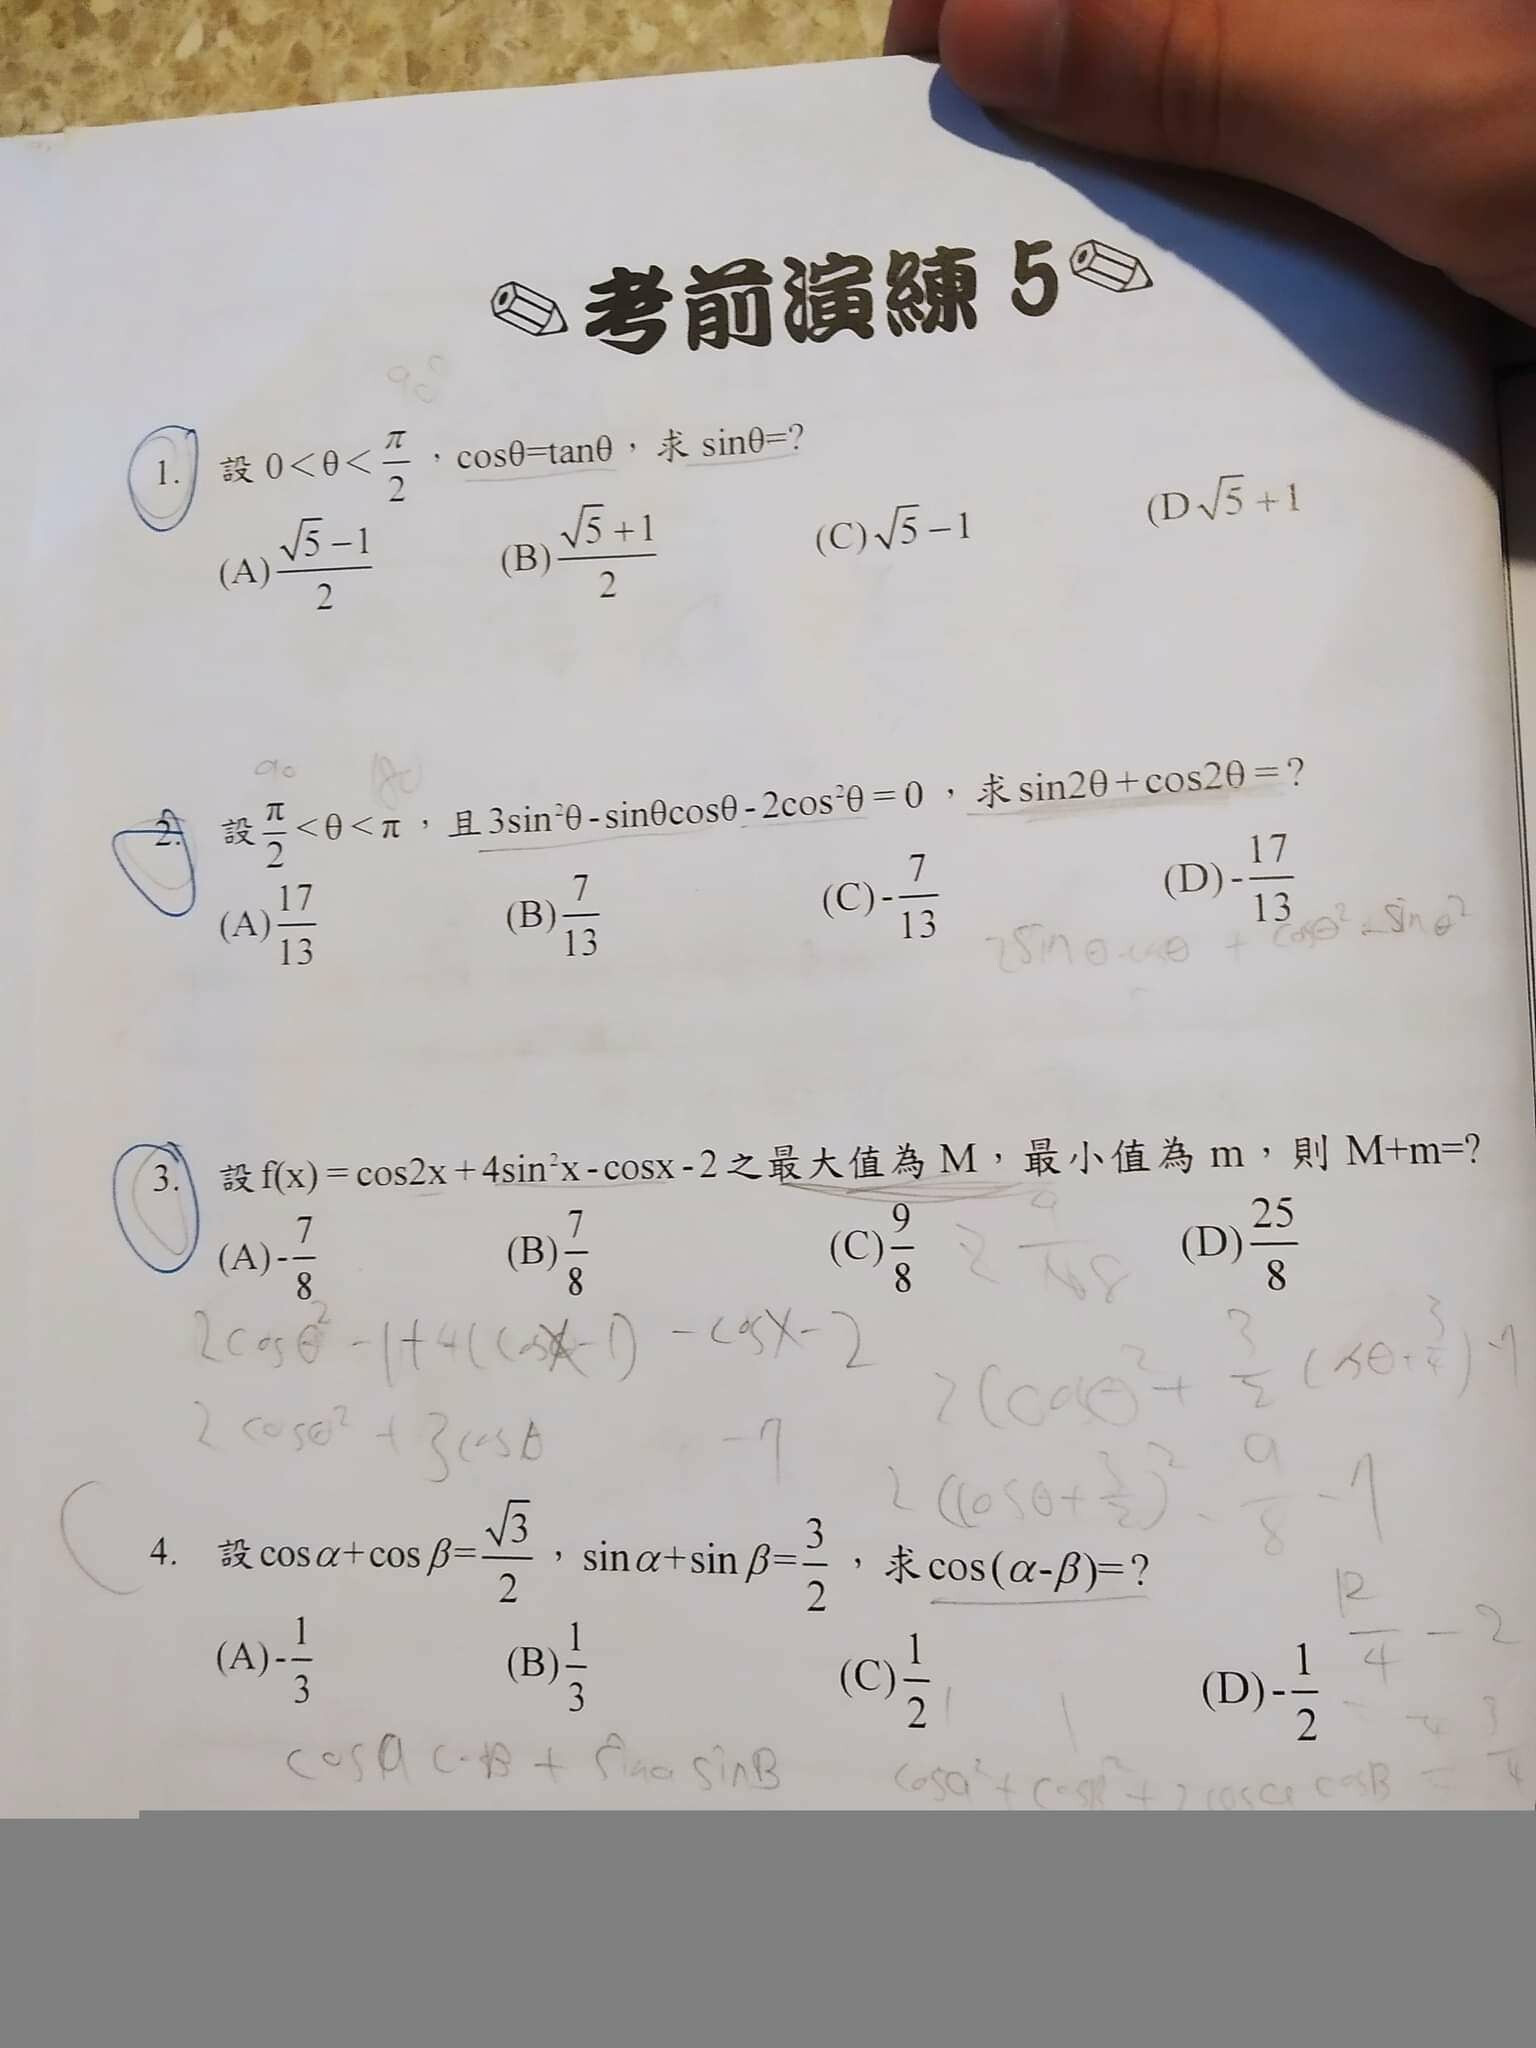 考前演練 5
90°
1. 設 0<θ<π/2，cosθ=tanθ，求 sinθ=?
(A) (√5−1)/2 (B) (√5+1)/2 (C) √5−1 (D √5+1
90 180
2. 設 π/2<θ<π，且3sin²θ-sinθcosθ-2cos²θ=0，求sin2θ+cos2θ=?
(A) 17/13 (B) 7/13 (C) -7/13 (D) -17/13
2sinθcosθ + cosθ² - sinθ²
3. 設f(x)=cos2x+4sin²x-cosx-2之最大值為M，最小值為m，則M+m=?
(A) -7/8 (B) 7/8 (C) 9/8 (D) 25/8
2cosθ² -1+4(cosx-1) -cosx-2
2cosθ² + 3cosθ -7
2(cosθ+3/2)² - 9/8 -7
4. 設cosα+cosβ=√3/2，sinα+sinβ=3/2，求cos(α-β)=?
12/4 - 2
(A) -1/3 (B) 1/3 (C) 1/2 (D) -1/2
cosα cosB + sinα sinB
cosα² + cosB² + 2cosα cosB = 3/4